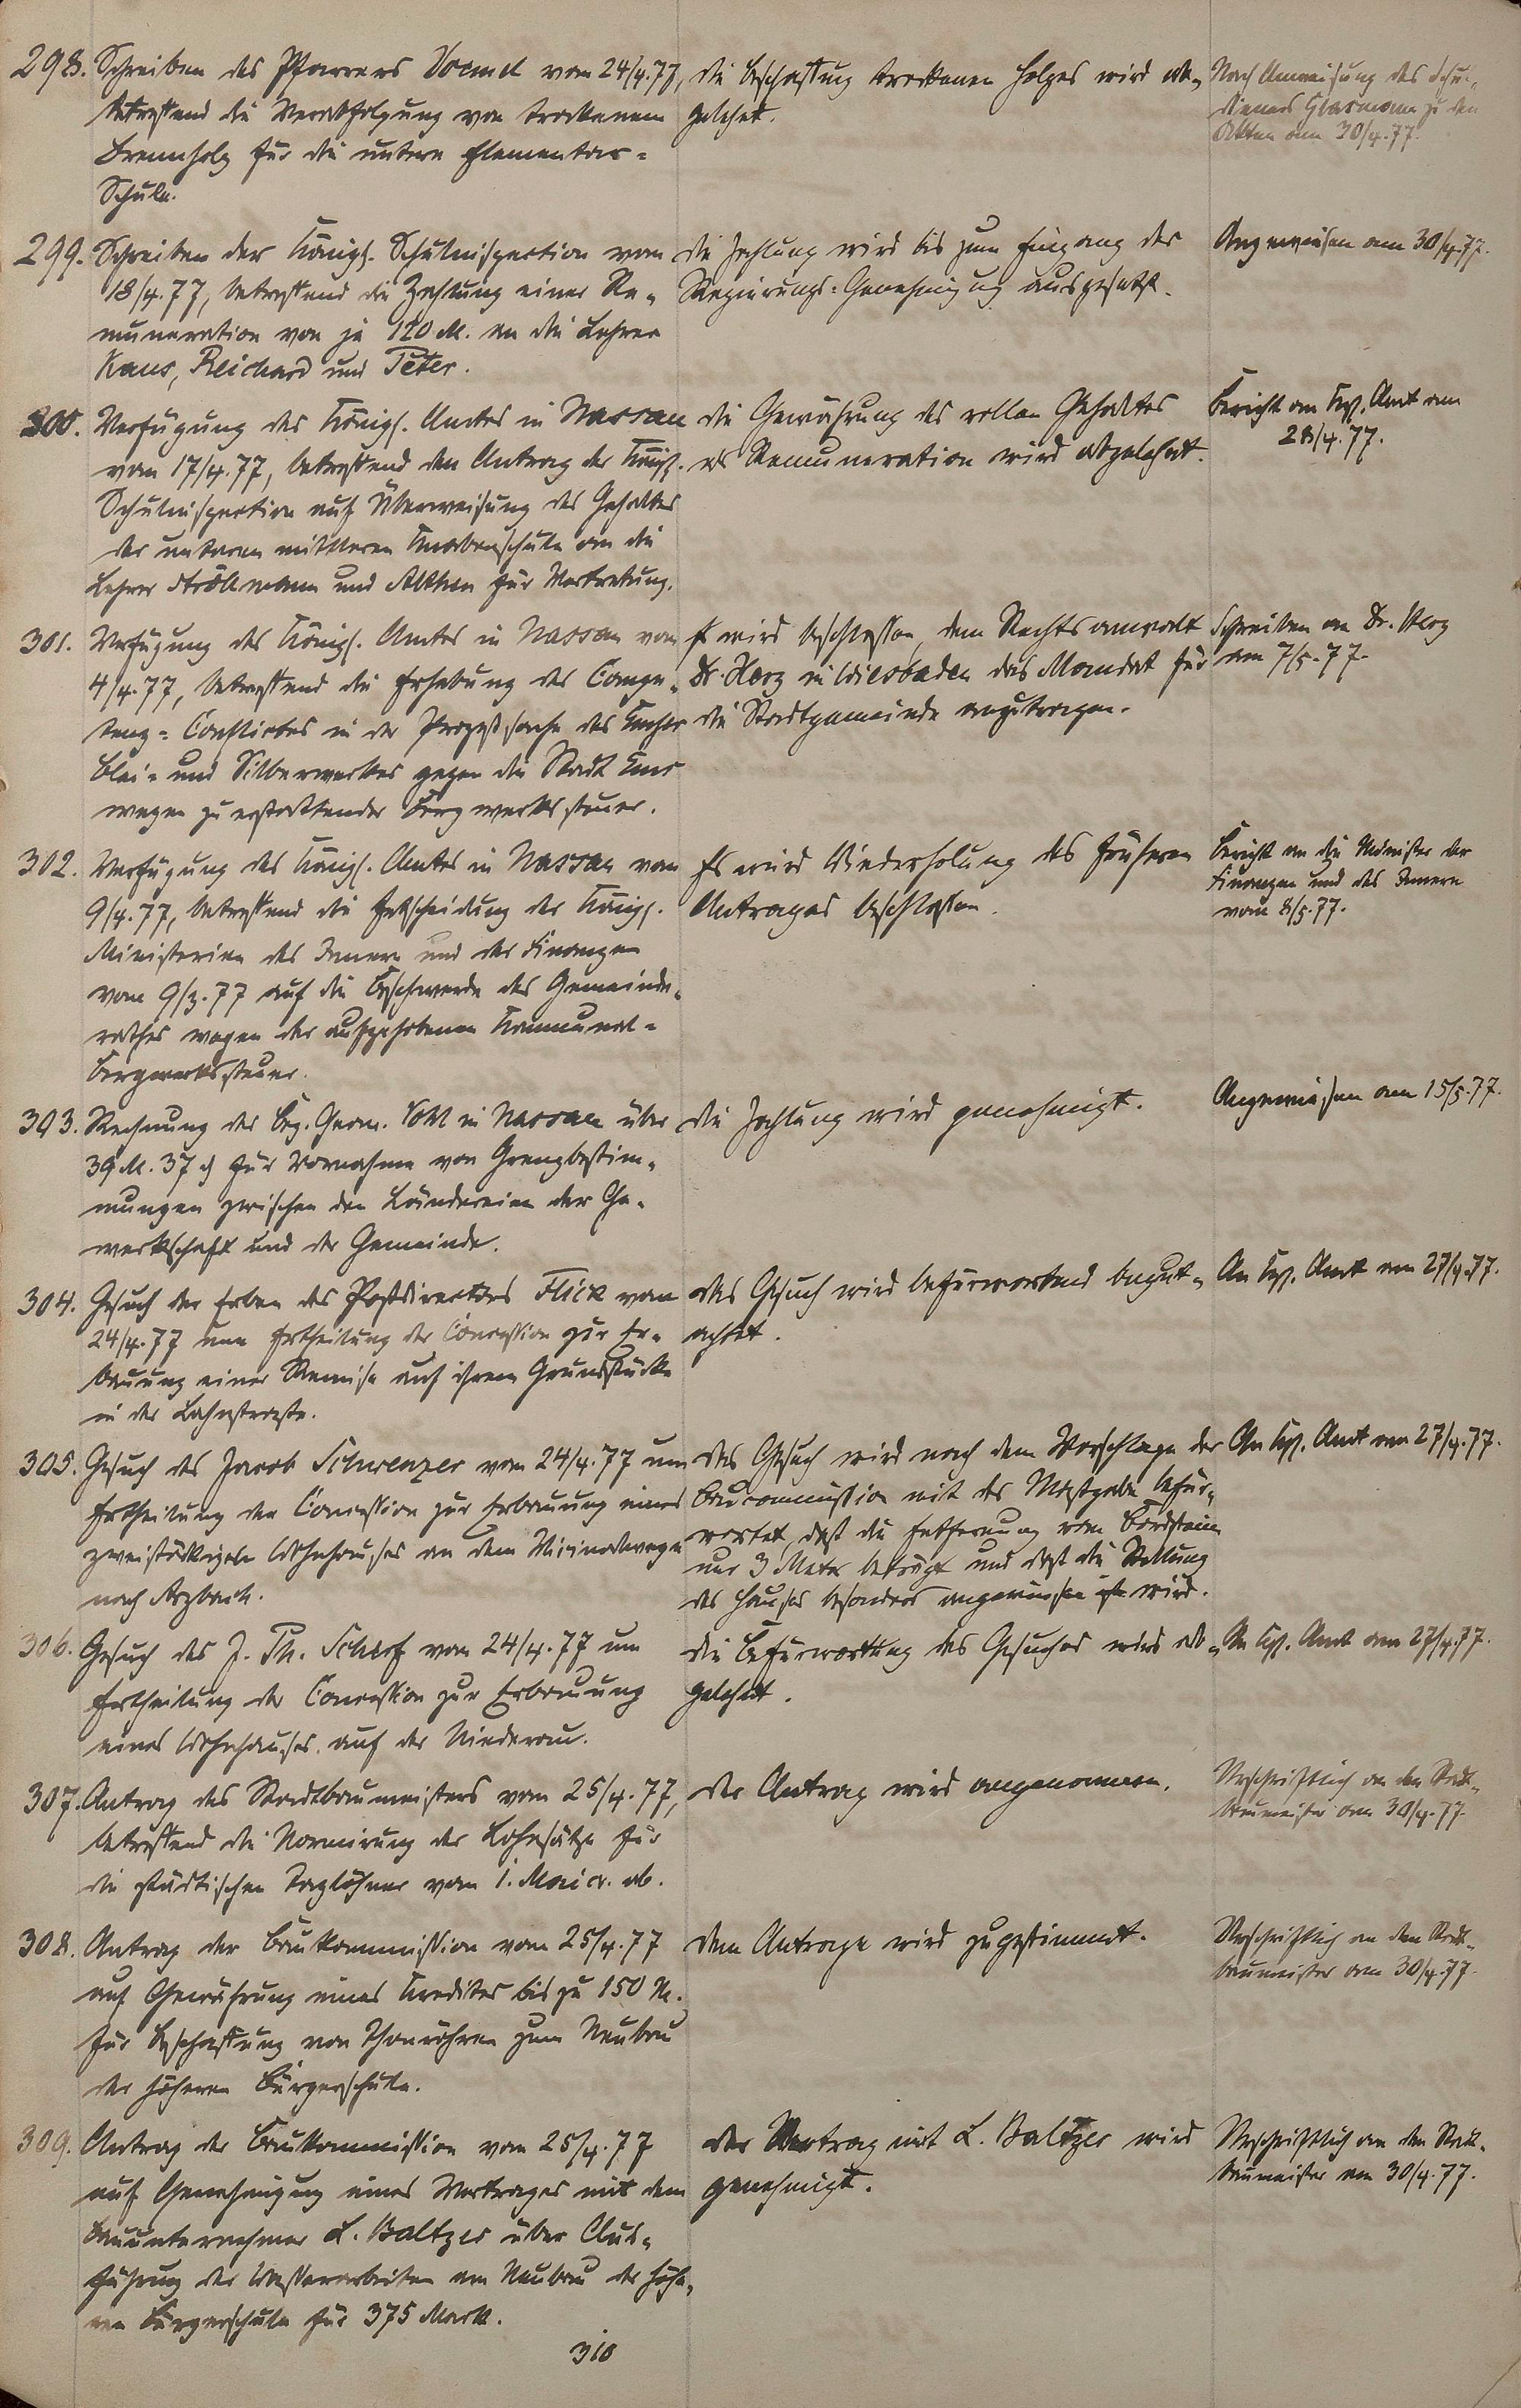 298. Schreiben des Pfarrers Vomel vom 24/4.77,
betreffend die Verabfolgung von trockenem
Brennholz für die untere Elementar-
Schule.
die Beschaffung trockenen Holzes wird ab-
gelehnt.
Nach Anweisung des Schul-
dieners Glasmann zu den
Akten am 30/4.77.
299. Schreiben der Königl. Schulinspection vom
18/4.77, betreffend die Zahlung einer Re-
muneration von je 120 M. an die Lehrer
Kaus, Reichard und Peter.
die Zahlung wird bis zum Eingang der
Regierungs-Genehmigung ausgesetzt.
Angewiesen am 30/4.77.
300. Verfügung des Königl. Amtes in Nassau
vom 17/4.77, betreffend den Antrag der Königl.
Schulinspection auf Überweisung des Gehaltes
der unteren mittleren Knabenschule an die
Lehrer Ströllmann und Althen für Vertretung.
die Gewährung des vollen Gehaltes
als Remuneration wird abgelehnt.
Bericht an Kgl. Amt am
28/4.77.
301. Verfügung des Königl. Amtes in Nassau vom
4/4.77, betreffend die Erhebung des Compe-
tenz-Conflictes in der Prozeßsache des Emser
Blei- und Silberwerkes gegen die Stadt Ems
wegen zu erstattender Bergwerkssteuer.
Es wird beschlossen, dem Rechtsanwalt
Dr. Herz in Wiesbaden das Mandat für
die Stadtgemeinde anzutragen.
Schreiben an Dr. Herz
am 7/5.77.
302. Verfügung des Königl. Amtes in Nassau vom
9/4.77, betreffend die Entscheidung der Königl.
Ministerien des Innern und der Finanzen
vom 9/3.77 auf die Beschwerde des Gemeinde-
rathes wegen der aufgehobenen Kommunal-
Bergwerkssteuer.
Es wird Wiederholung des früheren
Antrages beschlossen.
Bericht an die Minister der
Finanzen und des Innern
vom 8/5.77.
303. Rechnung des Bez. Geom. in Nassau über
39 M. 37 ₰ für Vornahme von Grenzbestim-
mungen zwischen den Ländereien der Ge-
werkschaft und der Gemeinde.
die Zahlung wird genehmigt.
Angewiesen am 15/5.77.
304. Gesuch der Erben des Postdirectors Flick vom
24/4.77 um Ertheilung der Concession zur Er-
bauung einer Remise auf ihrem Grundstücke
in der Lahnstraße.
das Gesuch wird befürwortend begut-
achtet.
An Kgl. Amt am 27/4.77.
305. Gesuch des Jacob Schwenzer vom 24/4.77 um
Ertheilung der Concession zur Erbauung eines
zweistöckigen Wohnhauses an dem Vicinalwege
nach Arzbach.
das Gesuch wird nach dem Vorschlage der
Baucommission mit der Maßgabe befür-
wortet, daß die Entfernung vom Bordstein
nur 3 Meter beträgt und daß die Stellung
des Hauses besonders angewiesen ist wird.
An Kgl. Amt am 27/4.77.
306. Gesuch des J. Ph. Scharf vom 24/4.77 um
Ertheilung der Concession zur Erbauung
eines Wohnhauses auf der Niederau.
die Befürwortung des Gesuches wird ab-
gelehnt.
An Kgl. Amt am 27/4.77.
307. Antrag des Stadtbaumeisters vom 25/4.77,
betreffend die Normirung der Lohnsätze für
die städtischen Taglöhner vom 1. Mai cr. ab.
der Antrag wird angenommen.
Urschriftlich an den Stadt-
baumeister am 30/4.77.
308. Antrag der Baukommission vom 25/4.77
auf Gewährung eines Kredites bis zu 150 M.
für Beschaffung von Thonröhren zum Neubau
der höheren Bürgerschule.
dem Antrage wird zugestimmt.
Urschriftlich an den Stadt-
baumeister am 30/4.77.
309. Antrag der Baukommission vom 25/4.77
auf Genehmigung eines Vertrages mit dem
Bauunternehmer L. Baltzer über Aus-
führung der am Neubau der höhe-
ren Bürgerschule für 375 Mark.
der Vertrag mit L. Baltzer wird
genehmigt.
Urschriftlich an den Stadt-
baumeister am 30/4.77.
310